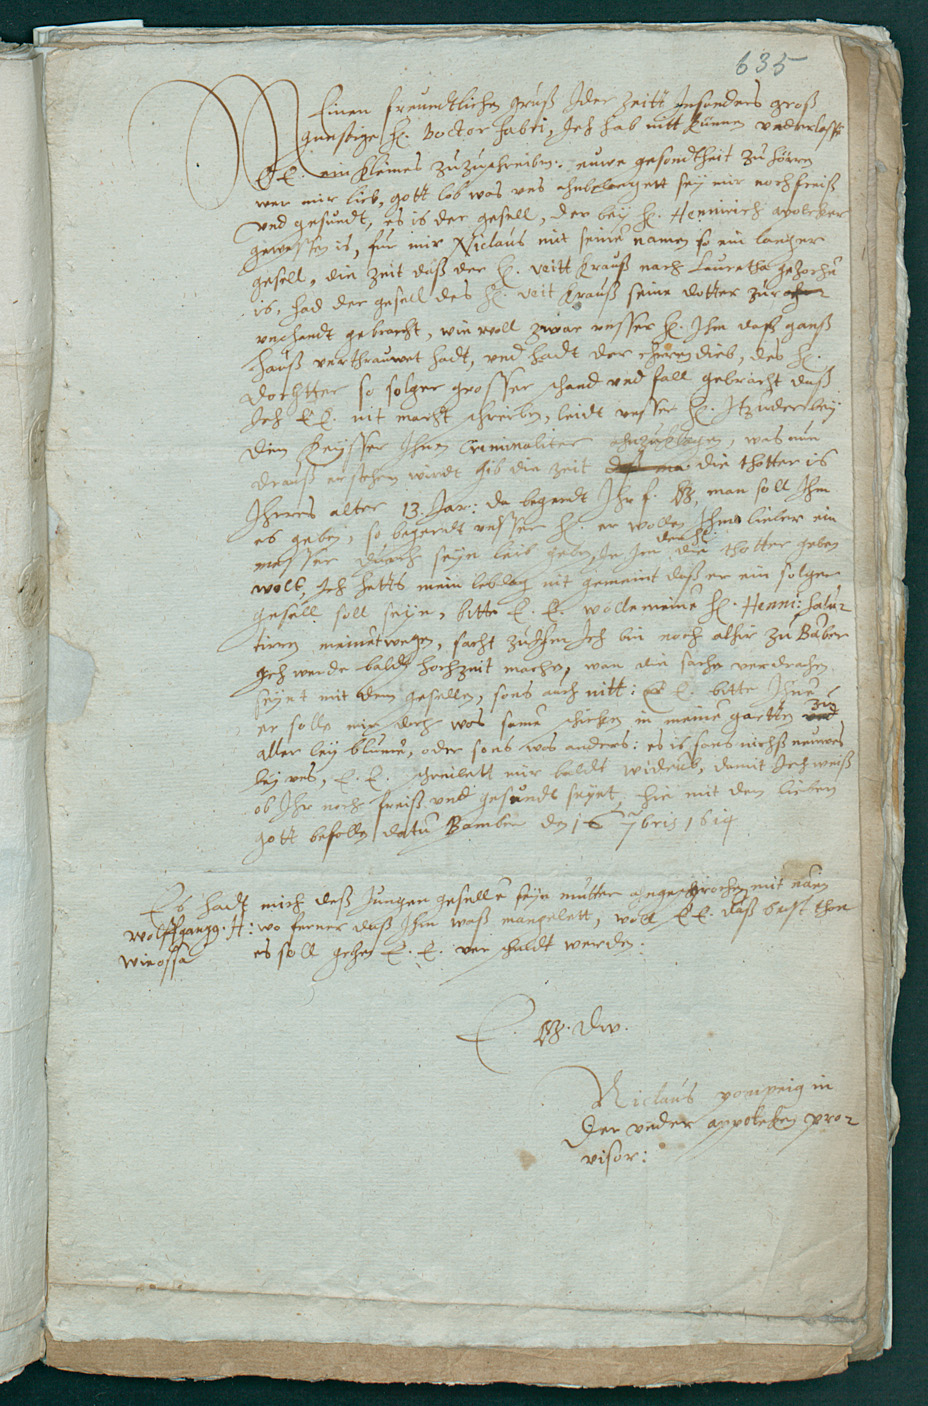 635
Meinen freundtlichen gruß Jder Zeitt Jnsonders groß
gunstiger H. Doctor Fabri, Jch hab nitt kunnen underlasse
E E. ein kleines zuzuschreiben. euwe gesondtheit zu hörren
wer mir lieb, gott lob was uns ahnbelangett sey mir noch freiß
und gesundt, es is der gesell, der bey H. Hennirich apotecker
gewessen is, für mir Niclaus mit seinē namen so ein langer
gesell, die Zeit daß der H. Veitt Krauß nach Lauretha gezochē
is, had der gesell des H. Veit Krauß seine dotter zur
unschandt gebracht, wie woll zwar unsser H. Jhm daß gantz
hauß verthrauwet hadt, und hadt der ehren dieb, des H.
dochtter so solger grosser schand und fall gebracht daß
Jch E E. nit macht schreiben, leidt unsser H. Jtzunder bey
dem Keysser Jhnen Criminaliter ahnzuklagen, was nun
drauß erstehen wirdt gib die zeit die thotter is
Jhres alter 13. Jar: da begerdt Jhr f. G. man soll Jhm
es geben, so begerdt unsser H. er wolle Jhme lieber ein
messer durch seyn leib geben, Je Jm die thotter geben
der H:
woll, Jch hette mein lebdag nit gemeint daß er ein solger
gesell soll seyn, bitte E. E. wölle meinē H. Henni: salu-
tiren meinetwegen, sacht zu Jhm Jch bin noch alhir zu Bāber
Jch werde baldt hochzeit mache, wan die sache verdrachen
seynt mit dem gesellen, sons auch nitt: E E. bitte Jhnē
er solle mir doch was samē schicken in meinē gartten zu
aller ley blume, oder sons was anders: es is sons nichß neuwes
bey uns, E. E. schreibett mir baldt widerub, damit Jch weiß
ob Jhr noch freiß und gesundt seynt, hie mit dem lieben
gott befollen datū Bamber den 16 7bris 1614
Es hadt mich deß Jungen gesellē seyn mutter angesprochen mit namen
Wolffgangg. H: wo ferner daß Jhm waß mangelett, woll E E. daß best thon
Wirossa es soll gehen E. E. verschuldt werden.
E. G. Dw.
Niclaus pompeig in
der under appoteken pro-
visor: